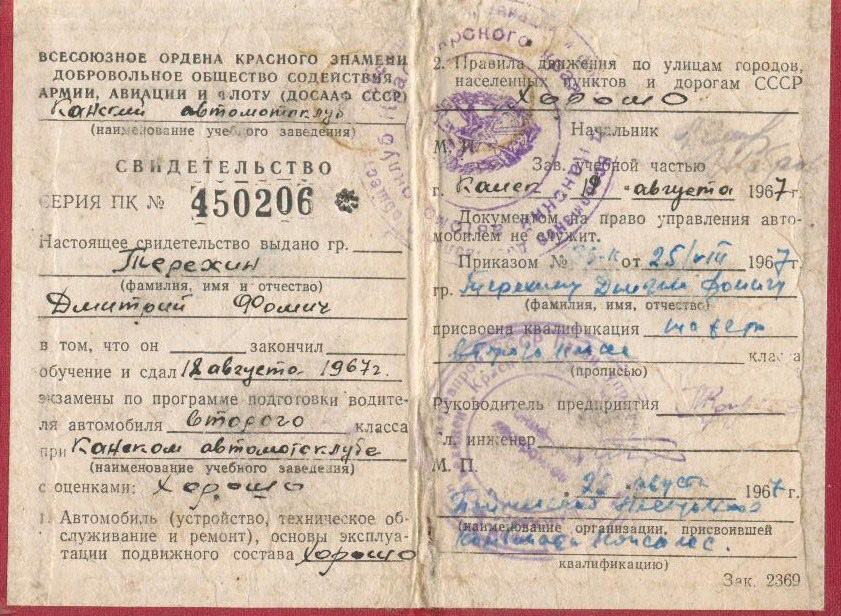 ВСЕСОЮЗНОЕ ОРДЕНА КРАСНОГО ЗНАМЕНИ
ДОБРОВОЛЬНОЕ ОБЩЕСТВО СОДЕЙСТВИЯ
АРМИИ, АВИАЦИИ И ФЛОТУ (ДОСААФ СССР)
Канский автомотоклуб
(наименование учебного заведения)
СВИДЕТЕЛЬСТВО
СЕРИЯ ПК № 450206
Настоящее свидетельство выдано гр.
Терехин
(фамилия, имя и отчество)
Дмитрий Фомич
в том, что он закончил
обучение и сдал 12 августа 1967г.
экзамены по программе подготовки водите-
ля автомобиля второго класса
при Канском автомотоклубе
(наименование учебного заведения)
с оценками: хорошо
1. Автомобиль (устройство, техническое об-
служивание и ремонт), основы эксплуа-
тации подвижного состава хорошо
2. Правила движения по улицам городов,
населенных пунктов и дорогам СССР
хорошо
Начальник
М. П.
Зав. учебной частью
г. Канск августа 1967 г.
Документом на право управления авто-
мобилем не служит.
Приказом № от 25/VIII 1967 г.
гр. Терехину Дмитрию Фомичу
(фамилия, имя, отчество)
присвоена квалификация шофера
второго класса класса
(прописью)
Руководитель предприятия
Гл. инженер
М. П.
августа 1967 г.
(наименование организации, присвоившей
квалификацию)
Зак. 2369